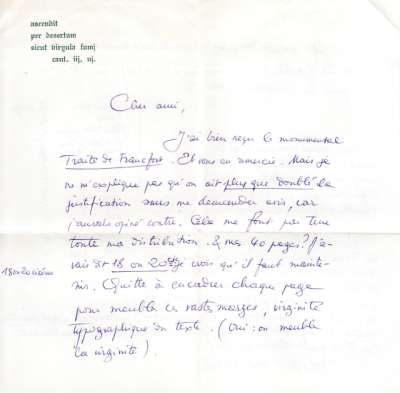 ascendit
per desertum
sicut virgula fumj
cant. iij, vj.
Cher ami,
J'ai bien reçu le monumental
Traité de Francfort. Et vous en remercie. Mais je
ne m'explique pas qu'on ait plus que doublé la
justification sans me demander avis, car
j'aurais opiné contre. Cela me fout par terre
toute ma distribution. & mes 40 pages? J'a-
vais dit 18 ou 20 & je crois qu'il faut mainte-
nir. Quitte à encadrer chaque page
pour meubler ces vastes marges, virginité
typographique du texte. (Oui: on meuble
la virginité).
18 ou 20 cicéros